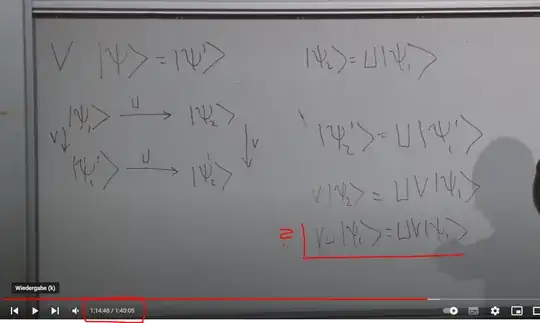 V |Ψ⟩ = |Ψ'⟩
|Ψ₁⟩ U→ |Ψ₂⟩
V↓ ↓V
|Ψ₁'⟩ U→ |Ψ₂'⟩
|Ψ₂⟩ = U|Ψ₁⟩
|Ψ₂'⟩ = U|Ψ₁'⟩
V|Ψ₂⟩ = UV|Ψ₁⟩
? VU|Ψ₁⟩ = UV|Ψ₁⟩
Wiedergabe (k)
1:14:48 / 1:40:05